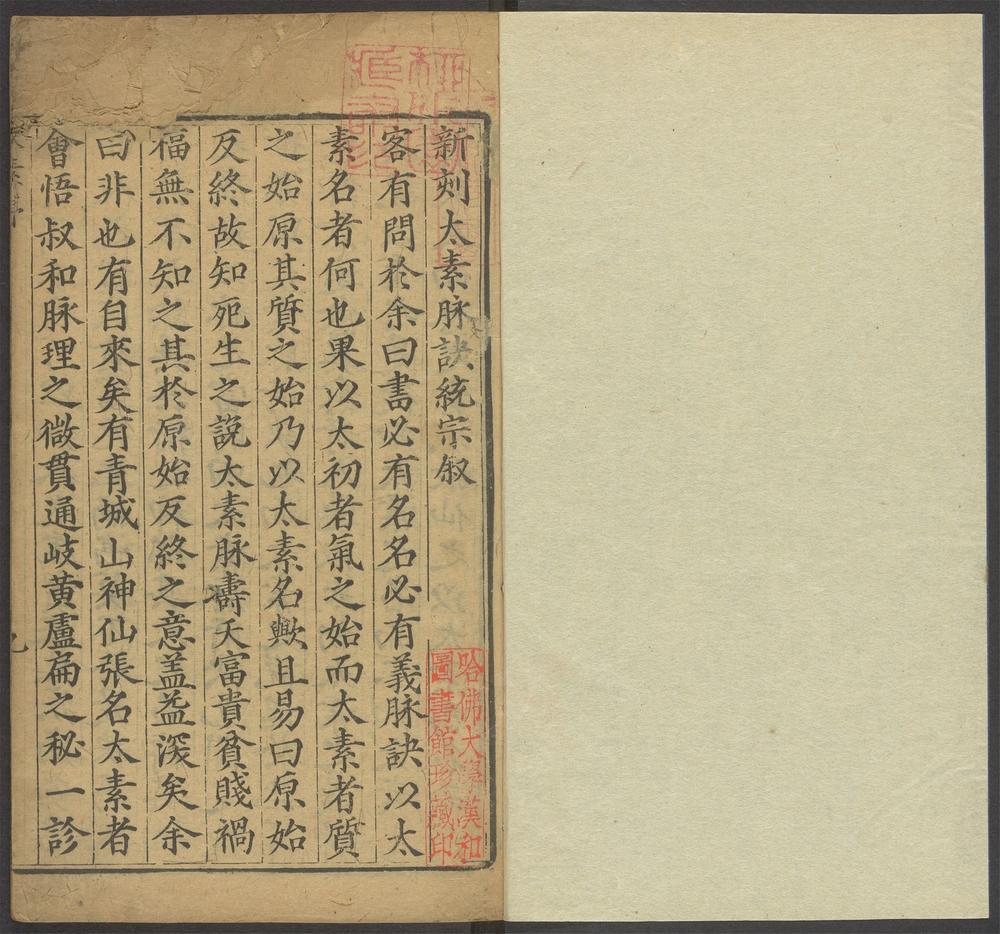 新刻太素脉訣統宗叙
客有問於余曰書必有名名必有義脉訣以太
素名者何也果以太初者氣之始而太素者質
之始原其質之始乃以太素名歟且易曰原始
反終故知死生之說太素脉壽夭富貴貧賤禍
福無不知之其於原始反終之意盖益深矣余
曰非也有自來矣有青城山神仙張名太素者
會悟叔和脉理之微貫通岐黄盧扁之秘一診
哈佛大學漢和
圖書館珍藏印